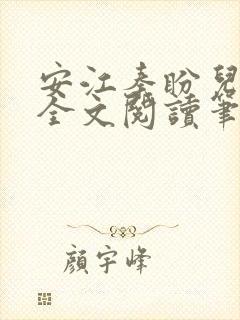 安江秦盼兒
全文閱讀筆
顏宇峰